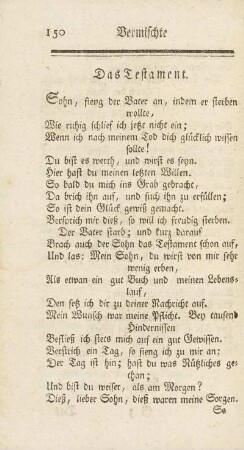 150 Vermischte
Das Testament.
Sohn, fieng der Vater an, indem er sterben
wollte,
Wie ruhig schlief ich jetzt nicht ein;
Wenn ich nach meinem Tod dich glücklich wissen
sollte!
Du bist es werth, und wirst es seyn.
Hier hast du meinen letzten Willen.
So bald du mich ins Grab gebracht,
Da brich ihn auf, und such ihn zu erfüllen;
So ist dein Glück gewiß gemacht.
Versprich mir dieß, so will ich freudig sterben.
Der Vater starb; und kurz darauf
Brach auch der Sohn das Testament schon auf,
Und las: Mein Sohn, du wirst von mir sehr
wenig erben,
Als etwan ein gut Buch und meinen Lebens-
lauf,
Den setz ich dir zu deiner Nachricht auf.
Mein Wunsch war meine Pflicht. Bey tausend
Hindernissen
Befließ ich stets mich auf ein gut Gewissen.
Verstrich ein Tag, so fieng ich zu mir an:
Der Tag ist hin; hast du was Nützliches ge-
than;
Und bist du weiser, als am Morgen?
Dieß, lieber Sohn, dieß waren meine Sorgen.
So